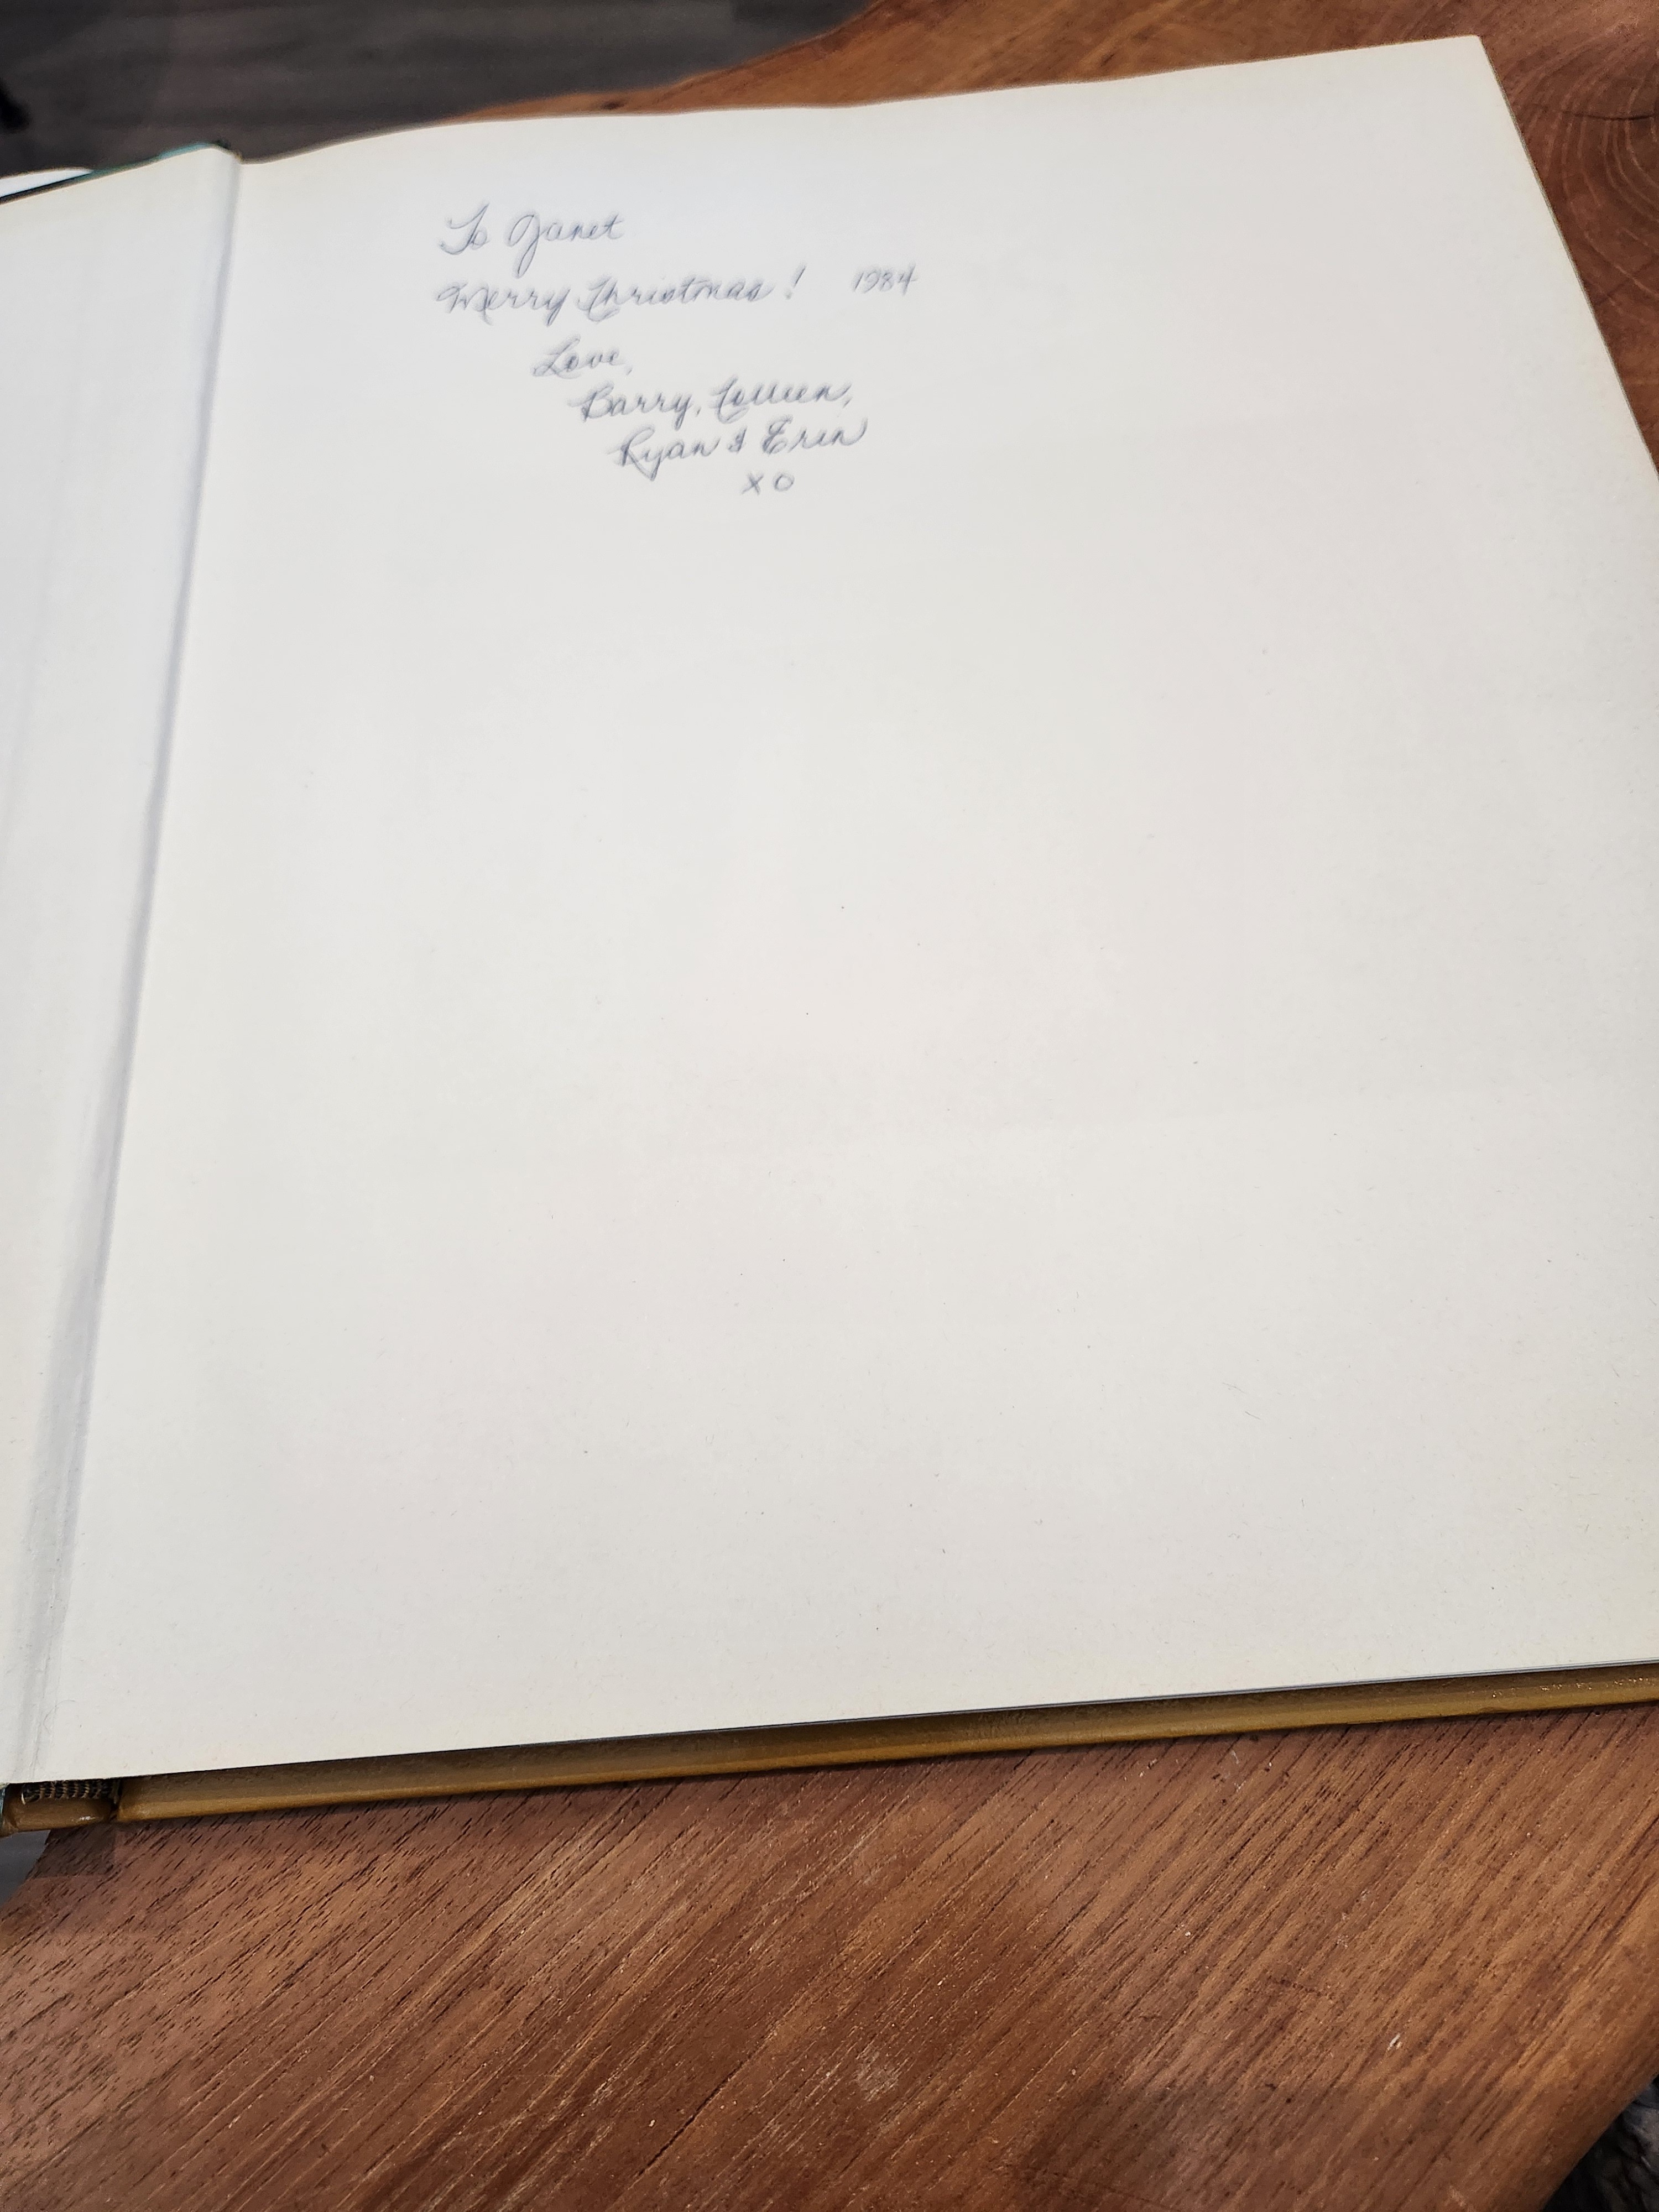 To Janet
Merry Christmas! 1984
Love,
Barry, Colleen,
Ryan & Erin
XO